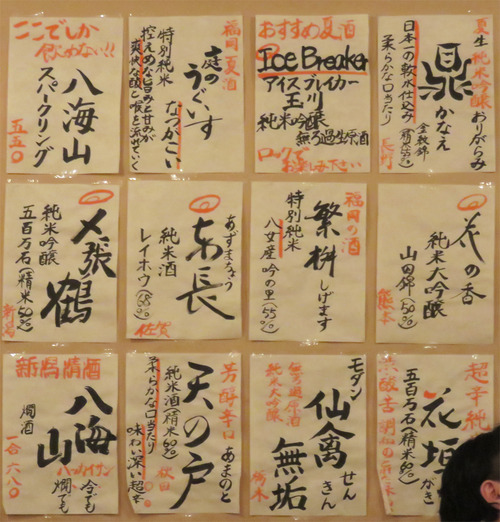 夏生 純米吟醸 おりがらみ
鼎
かなえ
金紋錦(精米55%)
日本一の軟水仕込み
柔らかな口当たり
長野
おすすめ夏酒
Ice Breaker
アイスブレイカー
玉川
純米吟醸
無ろ過生原酒
ロックで
お楽しみ下さい
福岡 夏酒
庭のうぐいす
なつがこい
特別純米
控えめな旨みと甘みが
爽快な酸と喉を流れていく
ここでしか
飲めない!!
八海山
スパークリング
五五〇
花の香
純米大吟醸
山田錦(50%)
熊本
福岡の酒
繁桝
しげます
特別純米
八女産 吟の里(55%)
あずまちょう
東長
純米酒
レイホウ(60%)
佐賀
〆張鶴
純米吟醸
五百万石(精米50%)
新潟
超辛純
花垣
がき
五百万石(精米60%)
モダン
仙禽
せんきん
無垢
無ろ過原酒
純米大吟醸
栃木
芳醇辛口
あまのと
天の戸
純米酒(精米60%)
秋田
柔らかな口当たり
味わい深い超辛
新潟清酒
八海山
今でも
燗でも
燗酒
一合 六八〇